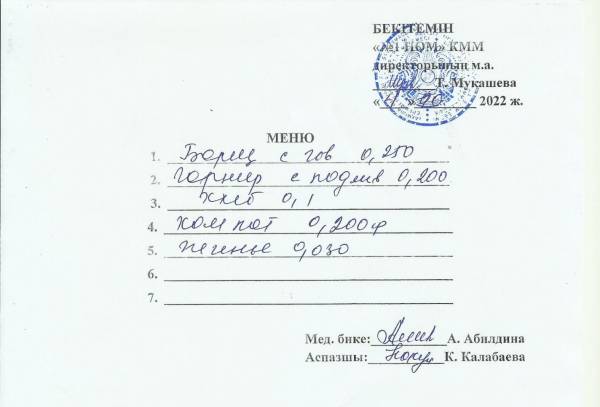 БЕКІТЕМІН
«№1 НОМ» КММ
директорының м.а.
Т. Мукашева
« » 2022 ж.
МЕНЮ
1. Борщ с гов 0,250
2. Горнир с подлив 0,200
3. Хлеб 0,1
4. Компот 0,200гр
5. Печенье 0,030
6.
7.
Мед. бике: А. Абилдина
Аспазшы: К. Калабаева